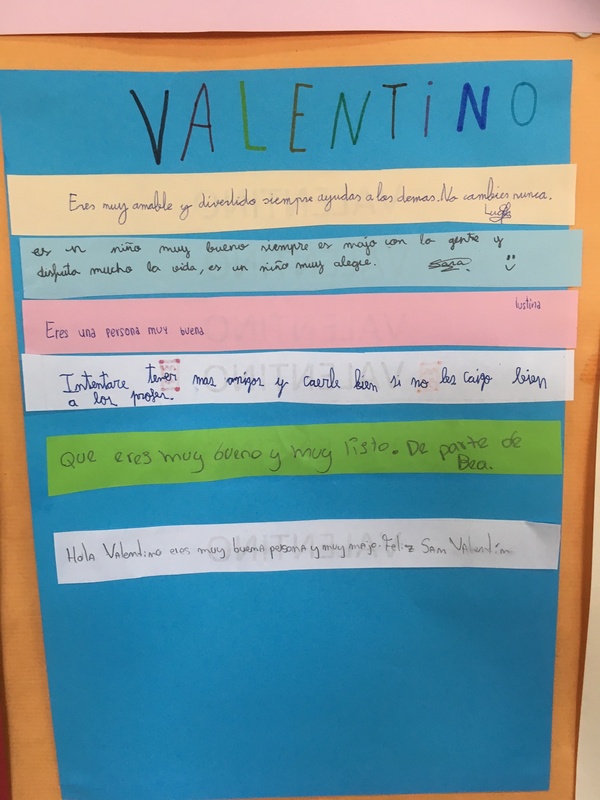 VALENTiNO
Eres muy amable y divertido siempre ayudas a los demas. No cambies nunca.
es un niño muy bueno siempre es majo con la gente y
disfruta mucho la vida, es un niño muy alegre. Sara
Iustina
Eres una persona muy buena
Intentare tener mas amigos y caerle bien si no les caigo bien
a los profes.
Que eres muy bueno y muy listo. De parte de
Bea.
Hola Valentino eres muy buena persona y muy majo. Feliz San Valentín